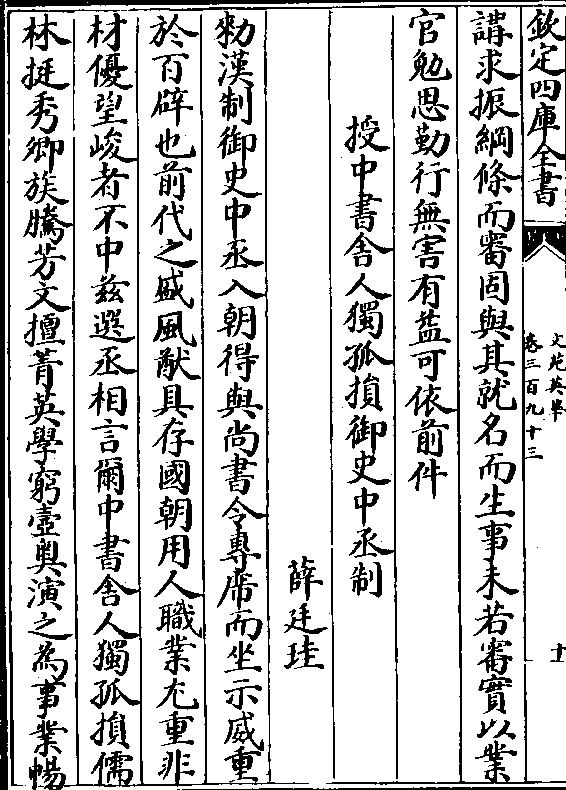 欽定四庫全書
文苑英華
卷三百九十三
十
講求振綱條而審固與其就名而生事未若審實以業
官勉思勤行無害有益可依前件
授中書舍人獨孤損御史中丞制
薛廷珪
勑漢制御史中丞入朝得與尚書令專席而坐示威重
於百辟也前代之盛風猷具存國朝用人職業尤重非
材優望峻者不中兹選丞相言爾中書舍人獨孤損儒
林挺秀卿族騰芳文擅菁英學窮壼奥演之為事業暢